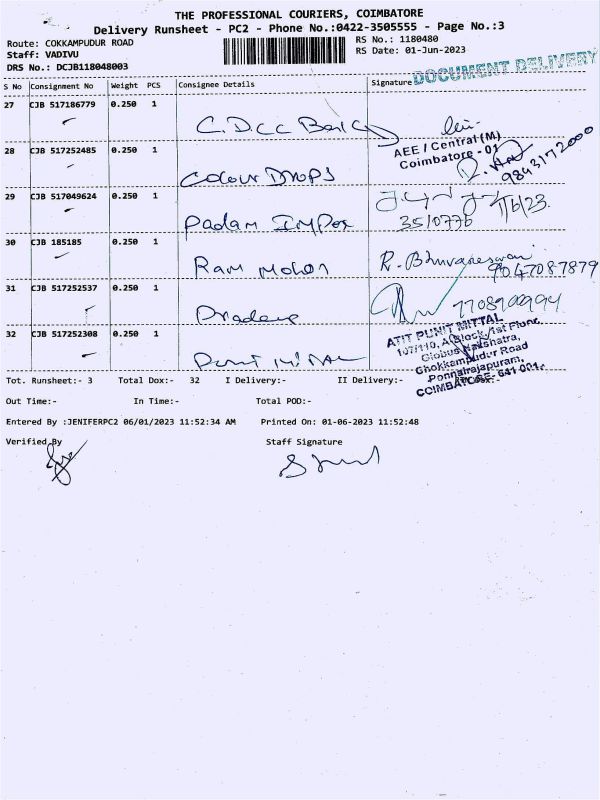 THE PROFESSIONAL COURIERS, COIMBATORE
Delivery Runsheet - PC2 - Phone No.:0422-3505555 - Page No.:3
Route: COKKAMPUDUR ROAD RS No.: 1180480
Staff: VADIVU RS Date: 01-Jun-2023
DRS No.: DCJB118048003
DOCUMENT DELIVERY
S No Consignment No Weight PCS Consignee Details Signature
27 CJB 517186779 0.250 1
C.D.C.C Bank
AEE / Central (M)
Coimbatore - 01
9843172000
28 CJB 517252485 0.250 1
Colour Drops
29 CJB 517049624 0.250 1
Padam Impex
1/6/23
30 CJB 185185 0.250 1
Ram Mohan
R. Bhuvaneswari
9047087879
31 CJB 517252537 0.250 1
Pradeep
32 CJB 517252308 0.250 1
Punit Mittal
ATIT PUNIT MITTAL
107/110, A Block, 1st Floor,
Globus Nakshatra,
Chokkampudur Road
Ponnairajapuram,
COIMBATORE- 641 001.
Tot. Runsheet:- 3 Total Dox:- 32 I Delivery:- II Delivery:-
Out Time:- In Time:- Total POD:-
Entered By :JENIFERPC2 06/01/2023 11:52:34 AM Printed On: 01-06-2023 11:52:48
Verified By Staff Signature